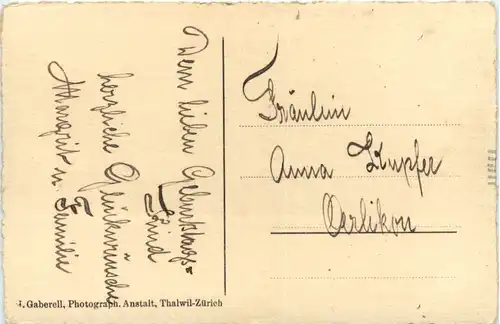 Dem lieben Geburtstags=
kind
herzliche Glückwünsche
Margrit u. Familie
Fräulein
Anna Kupfer
Oerlikon
J. Gaberell, Photograph. Anstalt, Thalwil-Zürich